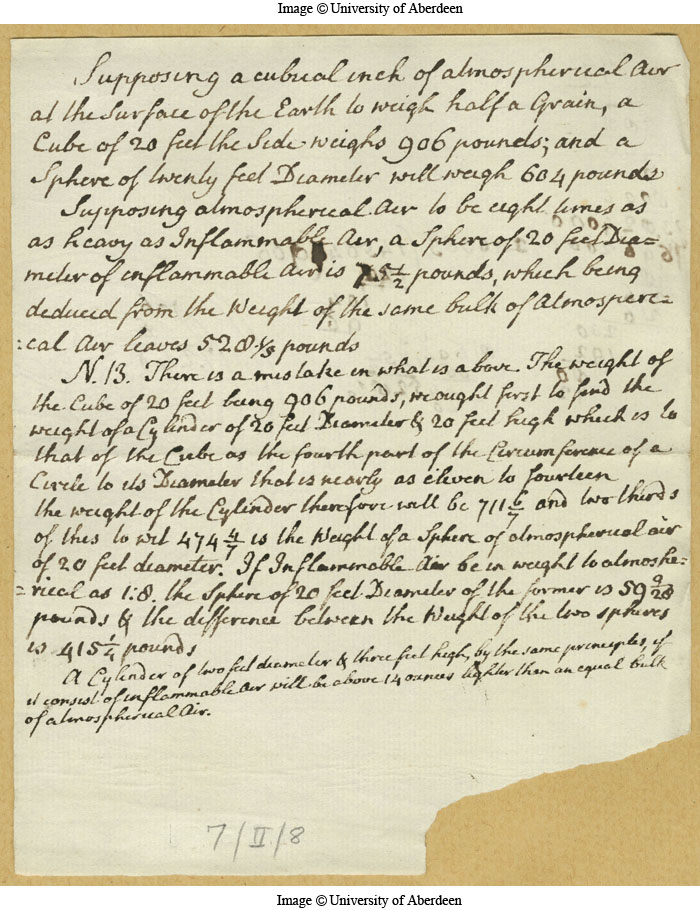 Image © University of Aberdeen
Supposing a cubical inch of atmospherical Air
at the surface of the Earth to weigh half a Grain, a
Cube of 20 feet the Side weighs 906 pounds; and a
Sphere of twenty feet Diameter will weigh 604 pounds
Supposing atmospherical Air to be eight times as
as heavy as Inflammable Air, a Sphere of 20 feet Dia=
meter of inflammable Air is 75 1/2 pounds, which being
deduced from the Weight of the same bulk of Atmospere=
=cal Air leaves 528 1/3 pounds
N. B. There is a mistake in what is above. The weight of
the Cube of 20 feet being 906 pounds, we ought first to find the
weight of a Cylinder of 20 feet Diameter & 20 feet high which is to
that of the Cube as the fourth part of the Circumference of a
Circle to its Diameter that is nearly as eleven to fourteen
the weight of the Cylinder therefore will be 711 6/7 and two thirds
of this to wit 474 4/7 is the Weight of a Sphere of atmospherical air
of 20 feet diameter. If Inflammable Air be in weight to atmosphe=
=rical as 1:8. the Sphere of 20 feet Diameter of the former is 59 9/28
pounds & the difference between the Weight of the two spheres
is 415 1/4 pounds
A Cylinder of two feet diameter & three feet high, by the same principles, if
it consist of inflammable Air will be above 14 ounces lighter than an equal bulk
of atmospherical Air.
7/II/8
Image © University of Aberdeen